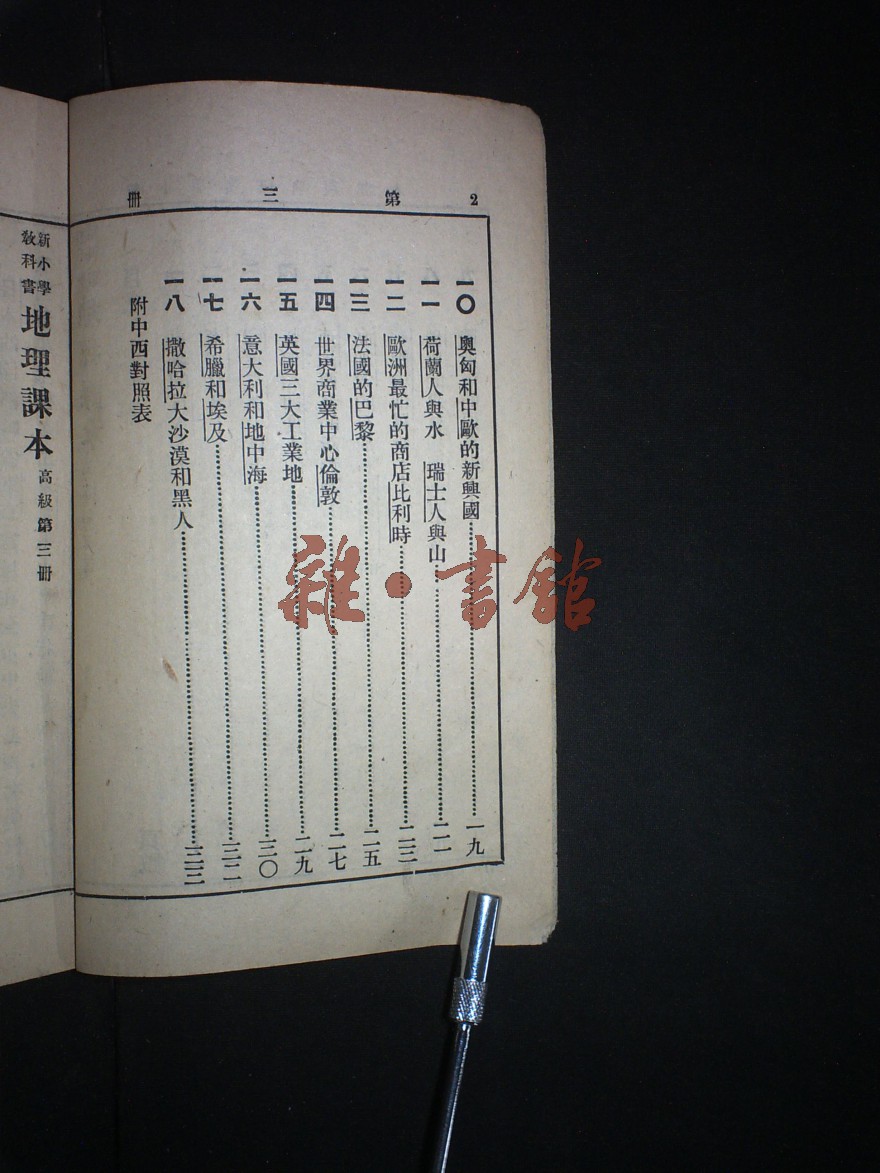 2 第三冊
一〇 奧匈和中歐的新興國……一九
一一 荷蘭人與水 瑞士人與山……二一
一二 歐洲最忙的商店比利時……二三
一三 法國的巴黎……二五
一四 世界商業中心倫敦……二七
一五 英國三大工業地……二九
一六 意大利和地中海……三〇
一七 希臘和埃及……三二
一八 撒哈拉大沙漠和黑人……三三
附中西對照表
新小學教科書 地理課本 高級第三冊
雜·書館